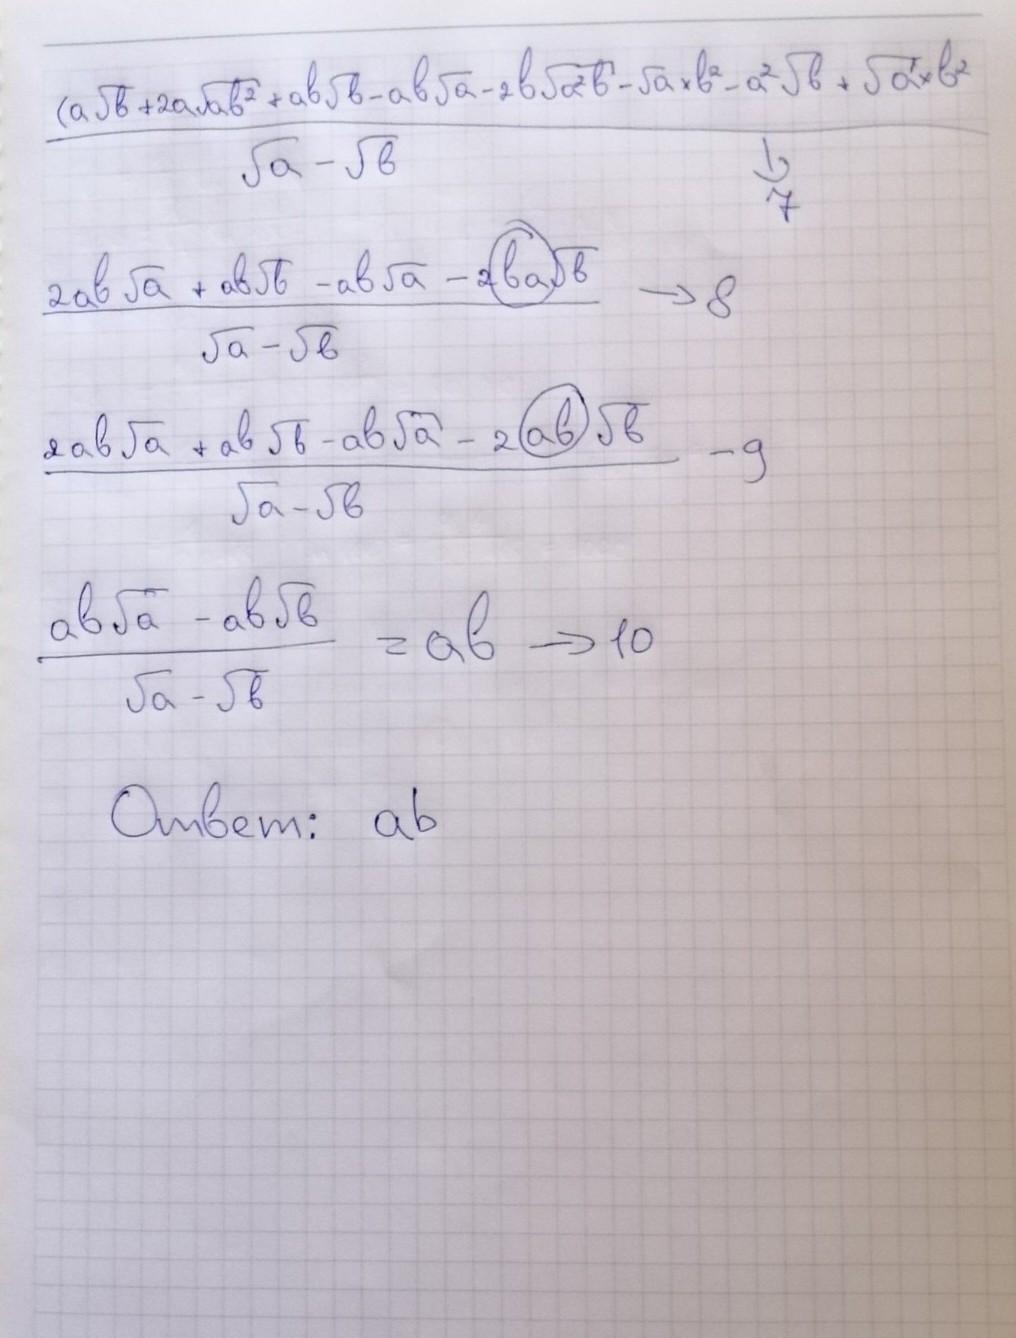 (a√b + 2a√ab² + ab√b - ab√a - 2b√a²b - √a × b² - a²√b + √a × b²
√a - √b
↳ 7
2ab√a + ab√b - ab√a - 2ba√b → 8
√a - √b
2ab√a + ab√b - ab√a - 2ab√b - 9
√a - √b
ab√a - ab√b = ab → 10
√a - √b
Ответ: ab